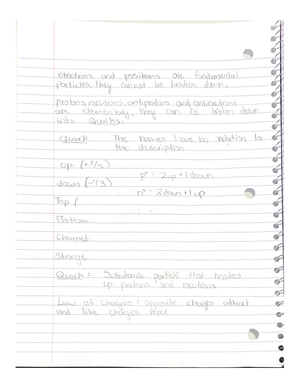 electrons and positrons are fundamental
particles, they cannot be broken down.
protons, neutrons, antiprotons and antineutrons
are elementary, they can be broken down
into Quarks.
Quark: The names have no relation to
the description
up (+2/3)
p⁺ = 2up + 1down
down (-1/3)
n° = 2down + 1up
Top (
Bottom
Charmed
Strange
Quarks: Subatomic particle that makes
up protons and neutrons
Law of charges: opposite charges attract
and like charges repel